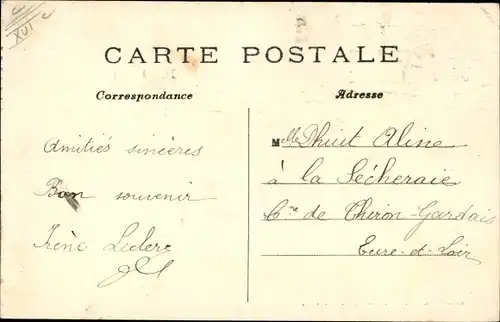 XVI
CARTE POSTALE
Correspondance
Adresse
Amitiés sincères
Bon souvenir
Irène Leclerc
Melle Dhuit Aline
à la Sécheraie
Cne de Thiron-Gardais
Eure-et-Loir